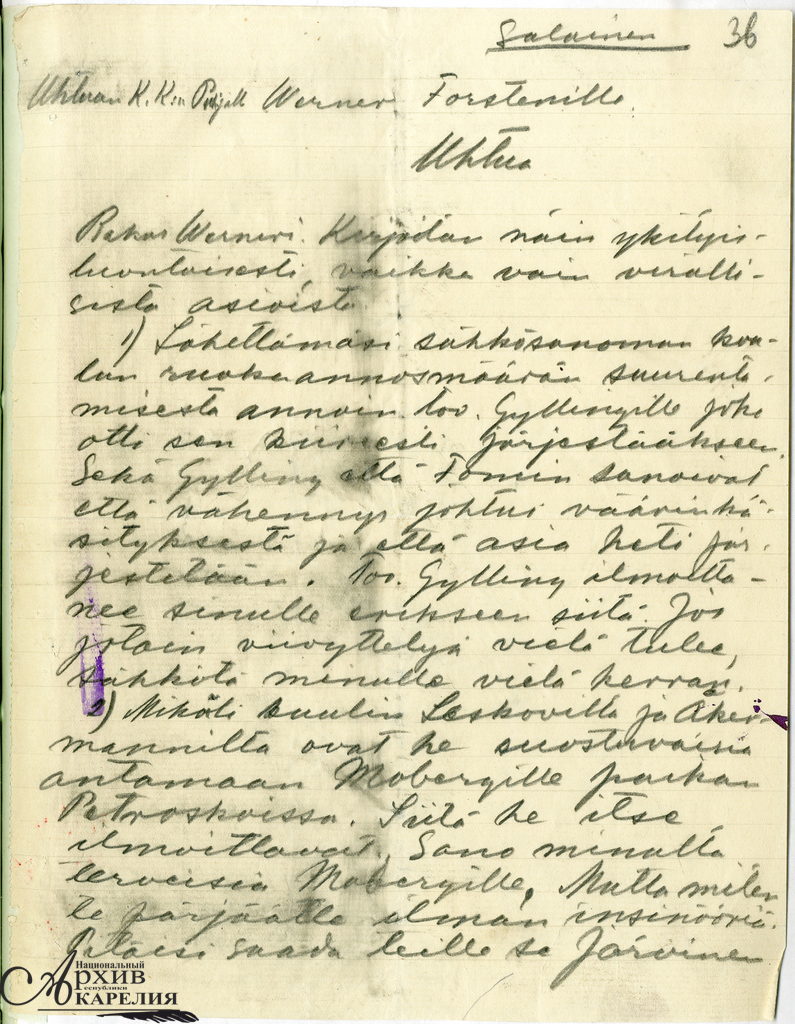 Salainen 36
Uhtuan K. K:n Werner Forstenille.
Uhtua
Rakas Werneri. Kirjoitan näin yksityis-
luontoisesti, vaikka vain viralli-
sista asioista.
1) Lähettämäsi sähkösanoman kou-
lun ruoka-annosmäärän suurenta-
misesta annoin tov. Gyllingille joka
otti sen kiireesti järjestääkseen.
Sekä Gylling että Fomin sanoivat
että vähennys johtui väärinkä-
sityksestä ja että asia heti jär-
jestetään. Tov. Gylling ilmoitta-
nee sinulle erikseen siitä. Jos
jotain viivyttelyä vielä tulee,
sähkötä minulle vielä kerran.
2) Mikäli kuulin Leskoviltä ja Åker-
mannilta ovat he suostuvaisia
antamaan Mobergille paikan
Petroskoissa. Siitä he itse
ilmoittavat. Sano minulta
terveisiä Mobergille. Mutta miten
te pärjäätte ilman insinööriä.
Pitäisi saada teille se Järvinen
Национальный
Архив
республики
Карелия